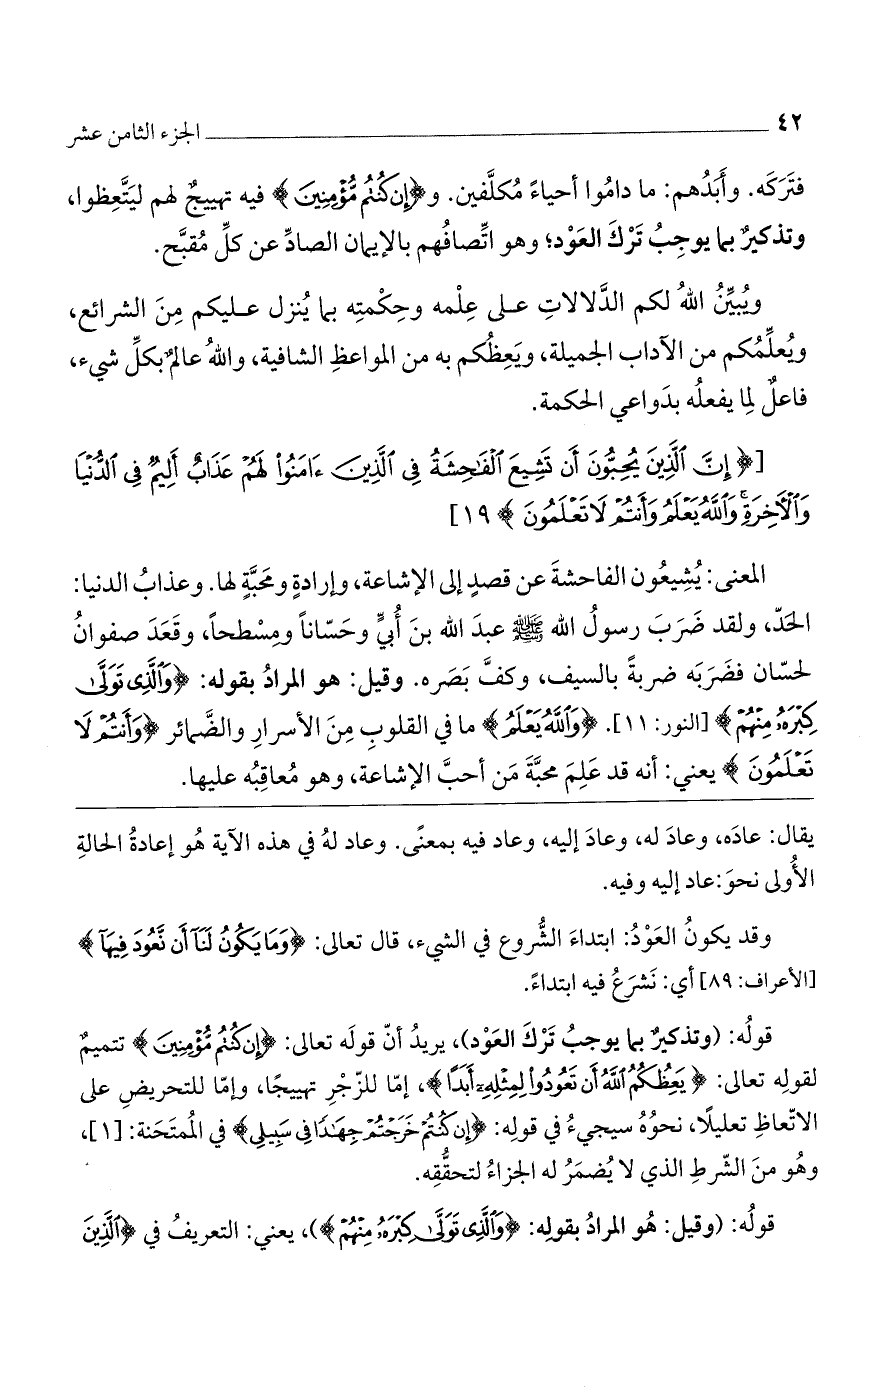 ٤٢ الجزء الثامن عشر
فتَرَكَه. وأَبَدُهم: ما دامُوا أحياءً مُكلَّفين. و﴿إِن كُنتُم مُّؤْمِنِينَ﴾ فيه تهييجٌ لهم ليَتَّعِظوا،
وتذكيرٌ بما يوجِبُ تَرْكَ العَوْد؛ وهو اتِّصافُهم بالإيمان الصادِّ عن كلِّ مُقبَّح.
ويُبيِّنُ اللهُ لكم الدَّلالاتِ على عِلْمه وحِكْمتِه بما يُنزل عليكم مِنَ الشرائع،
ويُعلِّمُكم من الآداب الجميلة، ويَعِظُكم به من المواعظِ الشافية، واللهُ عالمٌ بكلِّ شيء،
فاعلٌ لِما يفعلُه بدَواعي الحكمة.
[﴿إِنَّ ٱلَّذِينَ يُحِبُّونَ أَن تَشِيعَ ٱلْفَاحِشَةُ فِى ٱلَّذِينَ ءَامَنُوا۟ لَهُمْ عَذَابٌ أَلِيمٌ فِى ٱلدُّنْيَا
وَٱلْأَخِرَةِ ۚ وَٱللَّهُ يَعْلَمُ وَأَنتُمْ لَا تَعْلَمُونَ﴾ ١٩]
المعنى: يُشِيعُون الفاحشةَ عن قصدٍ إلى الإشاعة، وإرادةٍ ومحَبَّةٍ لها. وعذابُ الدنيا:
الحَدّ، ولقد ضَرَبَ رسولُ الله ﷺ عبدَ الله بنَ أُبيٍّ وحَسّاناً ومِسْطحاً، وقَعَدَ صفوانُ
لحسّان فضَرَبَه ضربةً بالسيف، وكفَّ بَصَره. وقيل: هو المرادُ بقوله: ﴿وَٱلَّذِى تَوَلَّىٰ
كِبْرَهُۥ مِنْهُمْ﴾ [النور: ١١]. ﴿وَٱللَّهُ يَعْلَمُ﴾ ما في القلوبِ مِنَ الأسرارِ والضَّمائر ﴿وَأَنتُمْ لَا
تَعْلَمُونَ﴾ يعني: أنه قد عَلِمَ محبَّةَ مَن أحبَّ الإشاعة، وهو مُعاقِبُه عليها.
يقال: عادَه، وعادَ له، وعادَ إليه، وعاد فيه بمعنًى. وعاد لهُ في هذه الآية هُو إعادةُ الحالةِ
الأُولى نحوَ: عاد إليه وفيه.
وقد يكونُ العَوْدُ: ابتداءَ الشُّروع في الشيء، قال تعالى: ﴿وَمَا يَكُونُ لَنَآ أَن نَّعُودَ فِيهَآ﴾
[الأعراف: ٨٩] أي: نَشرَعُ فيه ابتداءً.
قولُه: (وتذكيرٌ بما يوجبُ تَرْكَ العَوْد)، يريدُ أنّ قولَه تعالى: ﴿إِن كُنتُم مُّؤْمِنِينَ﴾ تتميمٌ
لقولِه تعالى: ﴿يَعِظُكُمُ ٱللَّهُ أَن تَعُودُوا۟ لِمِثْلِهِۦٓ أَبَدًا﴾، إمّا للزّجْرِ تهييجًا، وإمّا للتحريضِ على
الاتّعاظِ تعليلًا، نحوُهُ سيجيءُ في قولِه: ﴿إِن كُنتُمْ خَرَجْتُمْ جِهَٰدًا فِى سَبِيلِى﴾ في الُممتَحَنة: [١]،
وهُو منَ الشّرطِ الذي لا يُضمَرُ له الجزاءُ لتحقُّقِه.
قولُه: (وقيل: هُو المرادُ بقولِه: ﴿وَٱلَّذِى تَوَلَّىٰ كِبْرَهُۥ مِنْهُمْ﴾)، يعني: التعريفُ في ﴿ٱلَّذِينَ